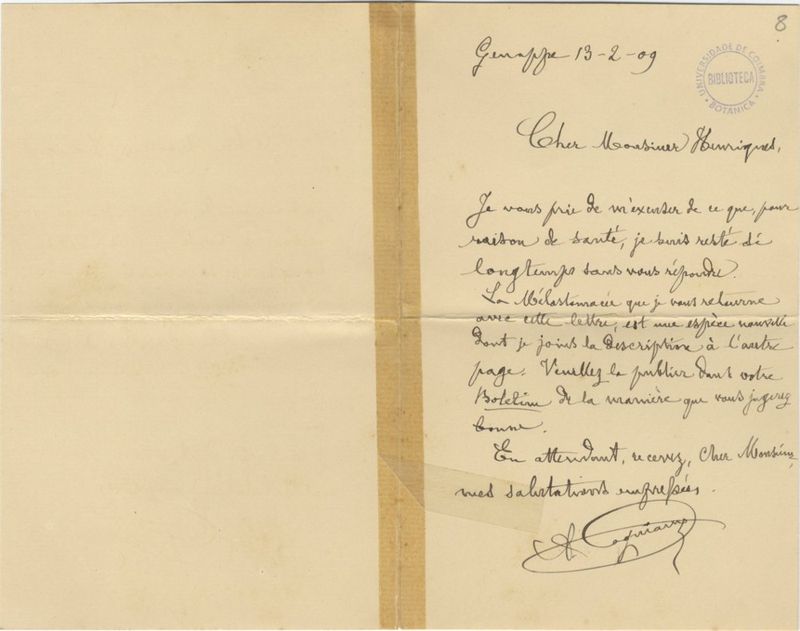 8
Genappe 13-2-09
UNIVERSIDADE DE COIMBRA
BIBLIOTECA
BOTANICA
Cher Monsieur Henriques,
Je vous prie de m'excuser de ce que, pour
raison de santé, je suis resté si
longtemps sans vous répondre.
La Mélastomacée que je vous retourne
avec cette lettre, est une espèce nouvelle
dont je joins la description à l'autre
page. Veuillez la publier dans votre
Boletim de la manière que vous jugerez
bonne.
En attendant, recevez, Cher Monsieur,
mes salutations empressées.
A. Cogniaux